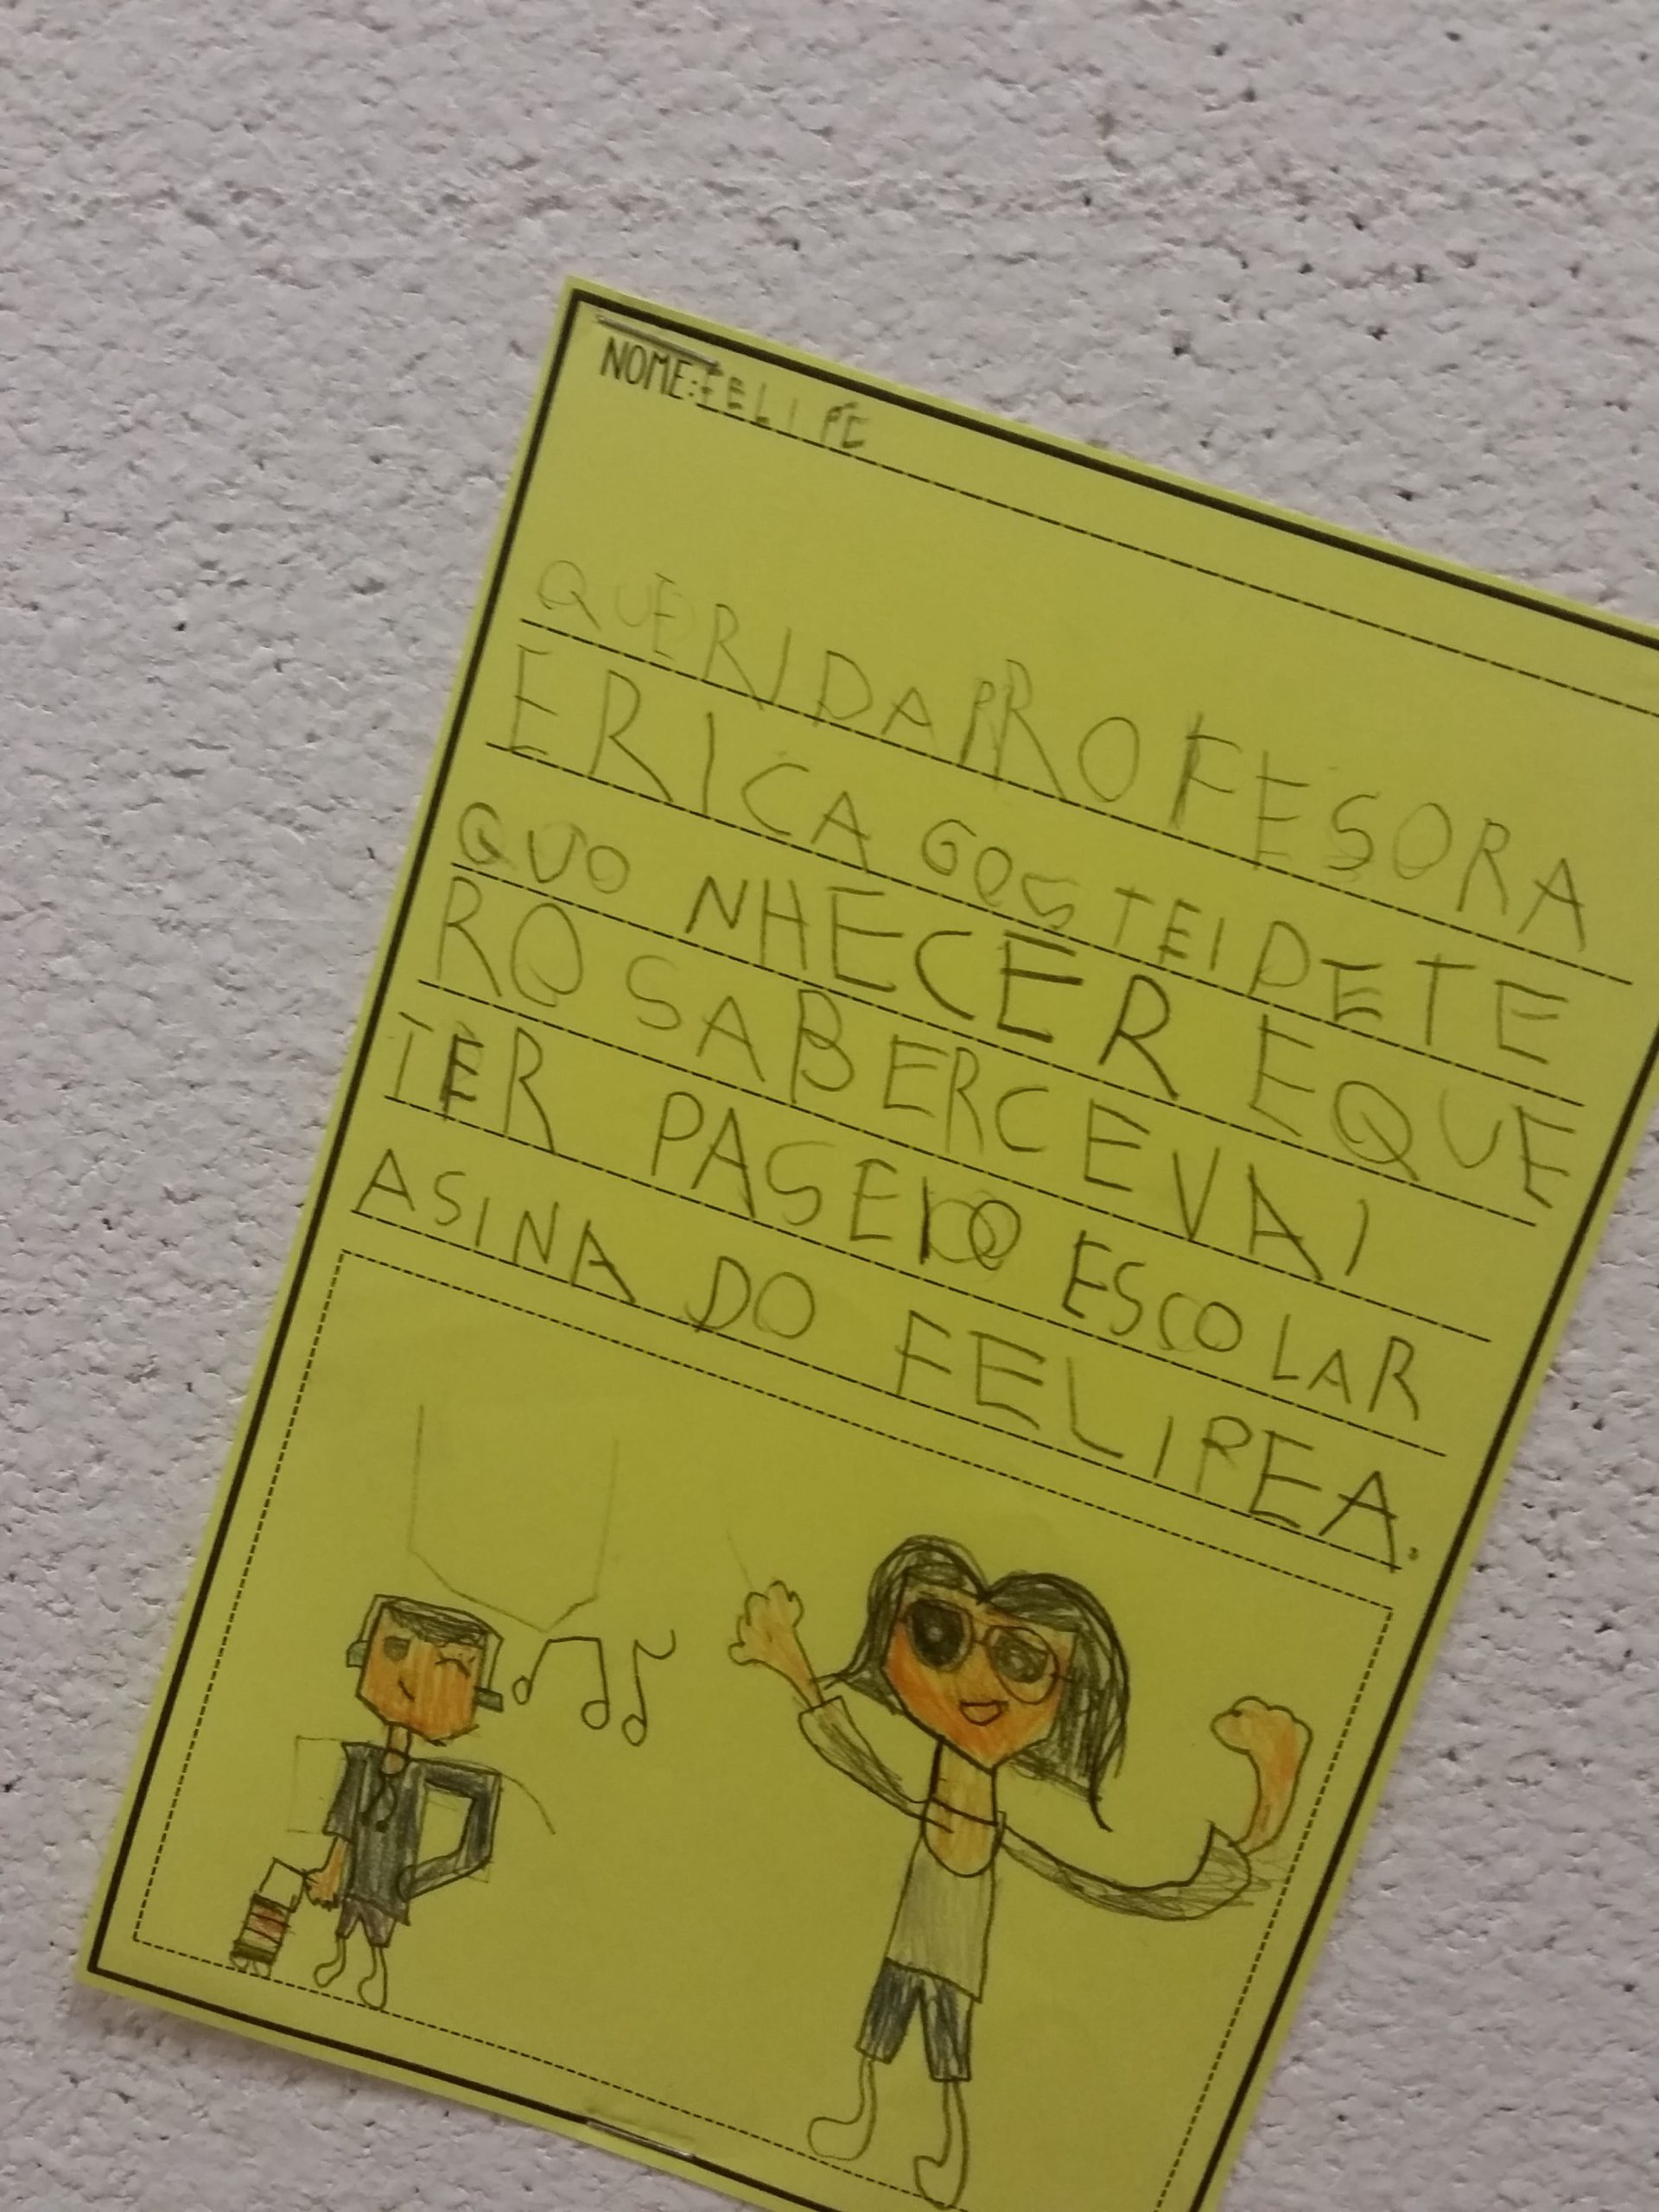 NOME: FELIPE
QUERIDA PROFESORA
ERICA GOSTEI DE TE
QUO NHECER E QUE
RO SABER CE VAI
TER PASEIO ESCOLAR
ASINA DO FELIPE A.